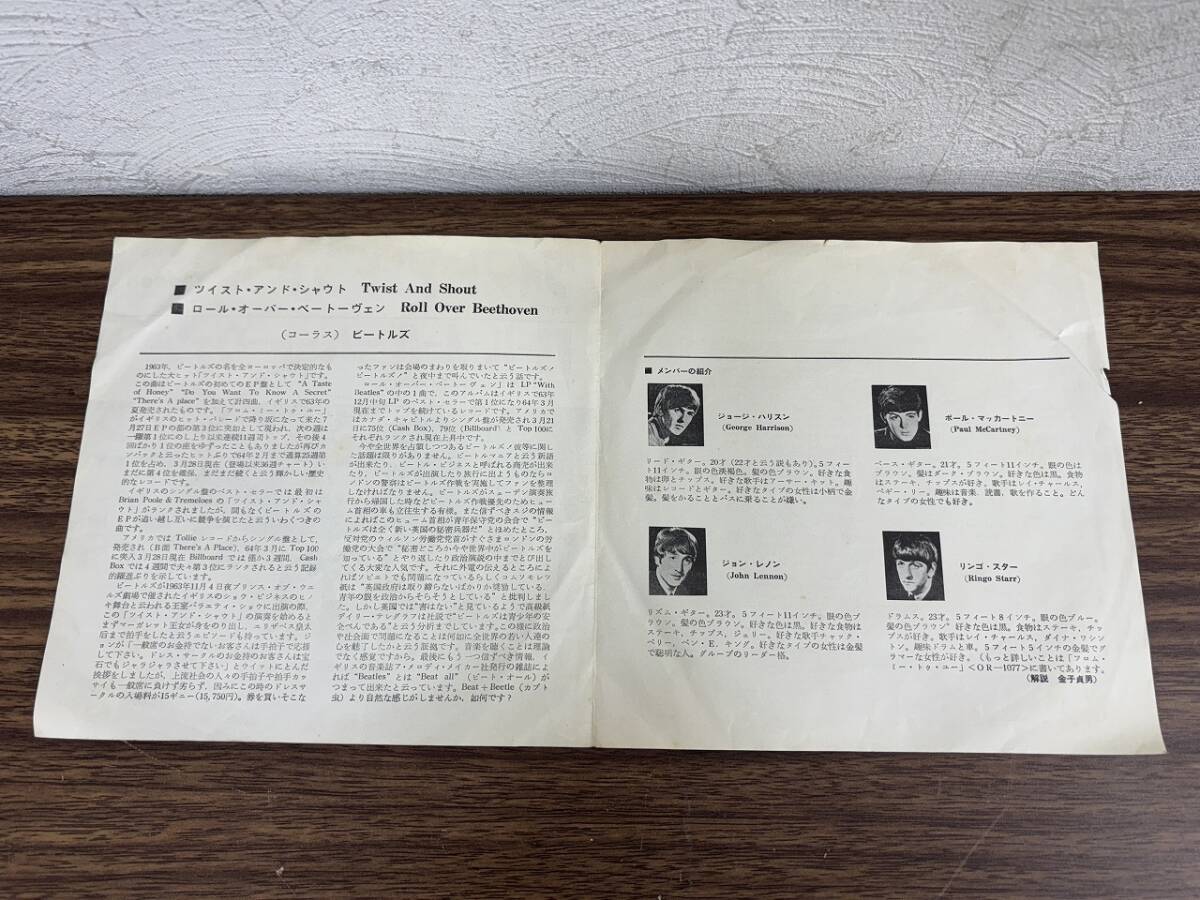 ■ ツイスト・アンド・シャウト Twist And Shout
■ ロール・オーバー・ベートーヴェン Roll Over Beethoven
(コーラス) ビートルズ
1963年、ビートルズの名を全ヨーロッパで決定的なも
のにした大ヒット「ツイスト・アンド・シャウト」です。
この曲はビートルズの初めてのEP盤として "A Taste
of Honey" "Do You Want To Know A Secret"
"There's A place" を加えて計四曲、イギリスで63年の
夏発売されたものです。「フロム・ミー・トゥ・ユー」
がイギリスのヒット・パレードで降り坂になって来た7
月27日EPの部の第3位に突如として現われ、次の週は
一躍第1位にのし上り以来連続11週間トップ、その後4
回ばかり1位の座をゆずったこともありましたが再びカ
ンバックと云ったヒットぶりで64年2月まで通算25週第
1位を占め、3月28日現在(登場以来36週チャート)い
まだに第4位を確保、まだまだ続くと云う輝かしい歴史
的なレコードです。
イギリスのシングル盤のベスト・セラーでは最初は
Brian Poole & Tremeloes の「ツイスト・アンド・シャ
ウト」がランクされましたが、間もなくビートルズの
EPが追い越し互いに競争を演じたと云ういわくつきの
曲です。
アメリカでは Tollie レコードからシングル盤として、
発売され(B面 There's A Place)、64年3月に Top 100
に突入3月28日現在 Billboard では僅か3週間、Cash
Box では4週間で夫々第3位にランクされると云う記録
的躍進ぶりを示しています。
ビートルズが1963年11月4日夜プリンス・オブ・ウエ
ルズ劇場で催されたイギリスのショウ・ビジネスのヒノ
キ舞台と云われる王室バラエティ・ショウに出演の際、
この「ツイスト・アンド・シャウト」の演奏を始めると
まずマーガレット王女が身をのり出し、エリザベス皇太
后まで拍手をしたと云うエピソードも持っています。ジ
ョンが「一般席のお金持でないお客さんは手拍子で応援
して下さい。ドレス・サークルのお金持のお客さんは宝
石でもジャラジャラさせて下さい」とウィットにとんだ
挨拶をしましたが、上流社会の人々の手拍子や拍手カッ
サイも一般席に負けず劣らず、因みにこの時のドレスサ
ークルの入場料が15ギニー(15,750円)。券を買いそこな
ったファンは会場のまわりを取りまいて "ビートルズ!
ビートルズ!" と夜中まで叫んでいたと云う話です。
ロール・オーバー・ベートーヴェン」は LP "With
Beatles" の中の1曲で、このアルバムはイギリスで63年
12月中旬 LP のベスト・セラーで第1位になり64年3月
現在までトップを続けているレコードです。アメリカで
はカナダ・キャピトルよりシングル盤が発売され3月21
日に75位 (Cash Box)、79位 (Billboard) と Top 100に
それぞれランクされ現在上昇中です。
今や全世界を占領しつつあるビートルズ/彼等に関し
た話題は限りがありません。ビートルマニアと云う新語
が出来たり、ビートル・ビジネスと呼ばれる商売が出来
たり、ビートルズが出演したり旅行に出ようものならロ
ンドンの警察はビートルズ作戦を実施してファンを整理
しなければなりません。ビートルズがスェーデン演奏旅
行から帰国した時などビートルズ作戦優先のためヒュー
ム首相の車も立往生する有様。また信ずべきスジの情報
によればこのヒューム首相が青年保守党の会合で "ビー
トルズは全く新い英国の秘密兵器だ" とほめたところ、
反対党のウィルソン労働党党首がすぐさまロンドンの労
働党の大会で "秘密どころか今や世界中がビートルズを
知っている" とやり返したり政治演説の中までとび出し
てくる大変な人気です。それに外電の伝えるところによ
ればソビエトでも問題になっているらしくコムソモレツ
紙は "英国政府は取り締らないばかりか奨励している。
青年の眼を政治からそらそうとしている" と批判しまし
た。しかし英国では "害はない" と見ているようで高級紙
デイリー・テレグラフは社説で "ビートルズは青少年の安
全べんである" と云う分析までしています。この様に政治
や社会面で問題になることは何如に全世界の若い人達の
心を魅了したかと云う証拠です。音楽を聴くことは理論
でなく感覚ですから。最後にもう一つ信ずべき情報、イ
ギリスの音楽誌ア・メロディ・メイカー社発行の雑誌によ
れば "Beatles" とは "Beat all" (ビート・オール)が
つまって出来たと云っています。Beat+Beetle (カブト
虫) より自然な感じがしませんか、如何です?
■ メンバーの紹介
ジョージ・ハリスン
(George Harrison)
リード・ギター。20才(22才と云う説もあり)。5フィー
ト11インチ。眼の色淡褐色。髪の色ブラウン。好きな食
物は卵とチップス。好きな歌手はアーサー・キット。趣
味はレコードとギター。好きなタイプの女性は小柄で金
髪。髪をかることとバスに乗ることが嫌い。
ポール・マッカートニー
(Paul McCartney)
ベース・ギター。21才。5フィート11インチ。眼の色は
ブラウン。髪はダーク・ブラウン。好きな色は黒。食物
はステーキ、チップスが好き。歌手はレイ・チャールス、
ペギー・リー。趣味は音楽、読書、歌を作ること。どん
なタイプの女性でも好き。
ジョン・レノン
(John Lennon)
リズム・ギター。23才。5フィート11インチ。眼の色ブ
ラウン。髪の色ブラウン。好きな色は黒。好きな食物は
ステーキ、チップス、ジェリー。好きな歌手チャック・
ベリー、ベン・E. キング。好きなタイプの女性は金髪
で聡明な人。グループのリーダー格。
リンゴ・スター
(Ringo Starr)
ドラムス。23才。5フィート8インチ。眼の色ブルー。
髪の色ブラウン" 好きな色は黒。食物はステーキ、チッ
プスが好き。歌手はレイ・チャールス、ダイナ・ワシン
トン。趣味ドラムと車。5フィート5インチの金髪でグ
ラマーな女性が好き。(もっと詳しいことは「フロム・
ミー・トゥ・ユー」<OR—1077>に書いてあります。
(解説 金子貞男)